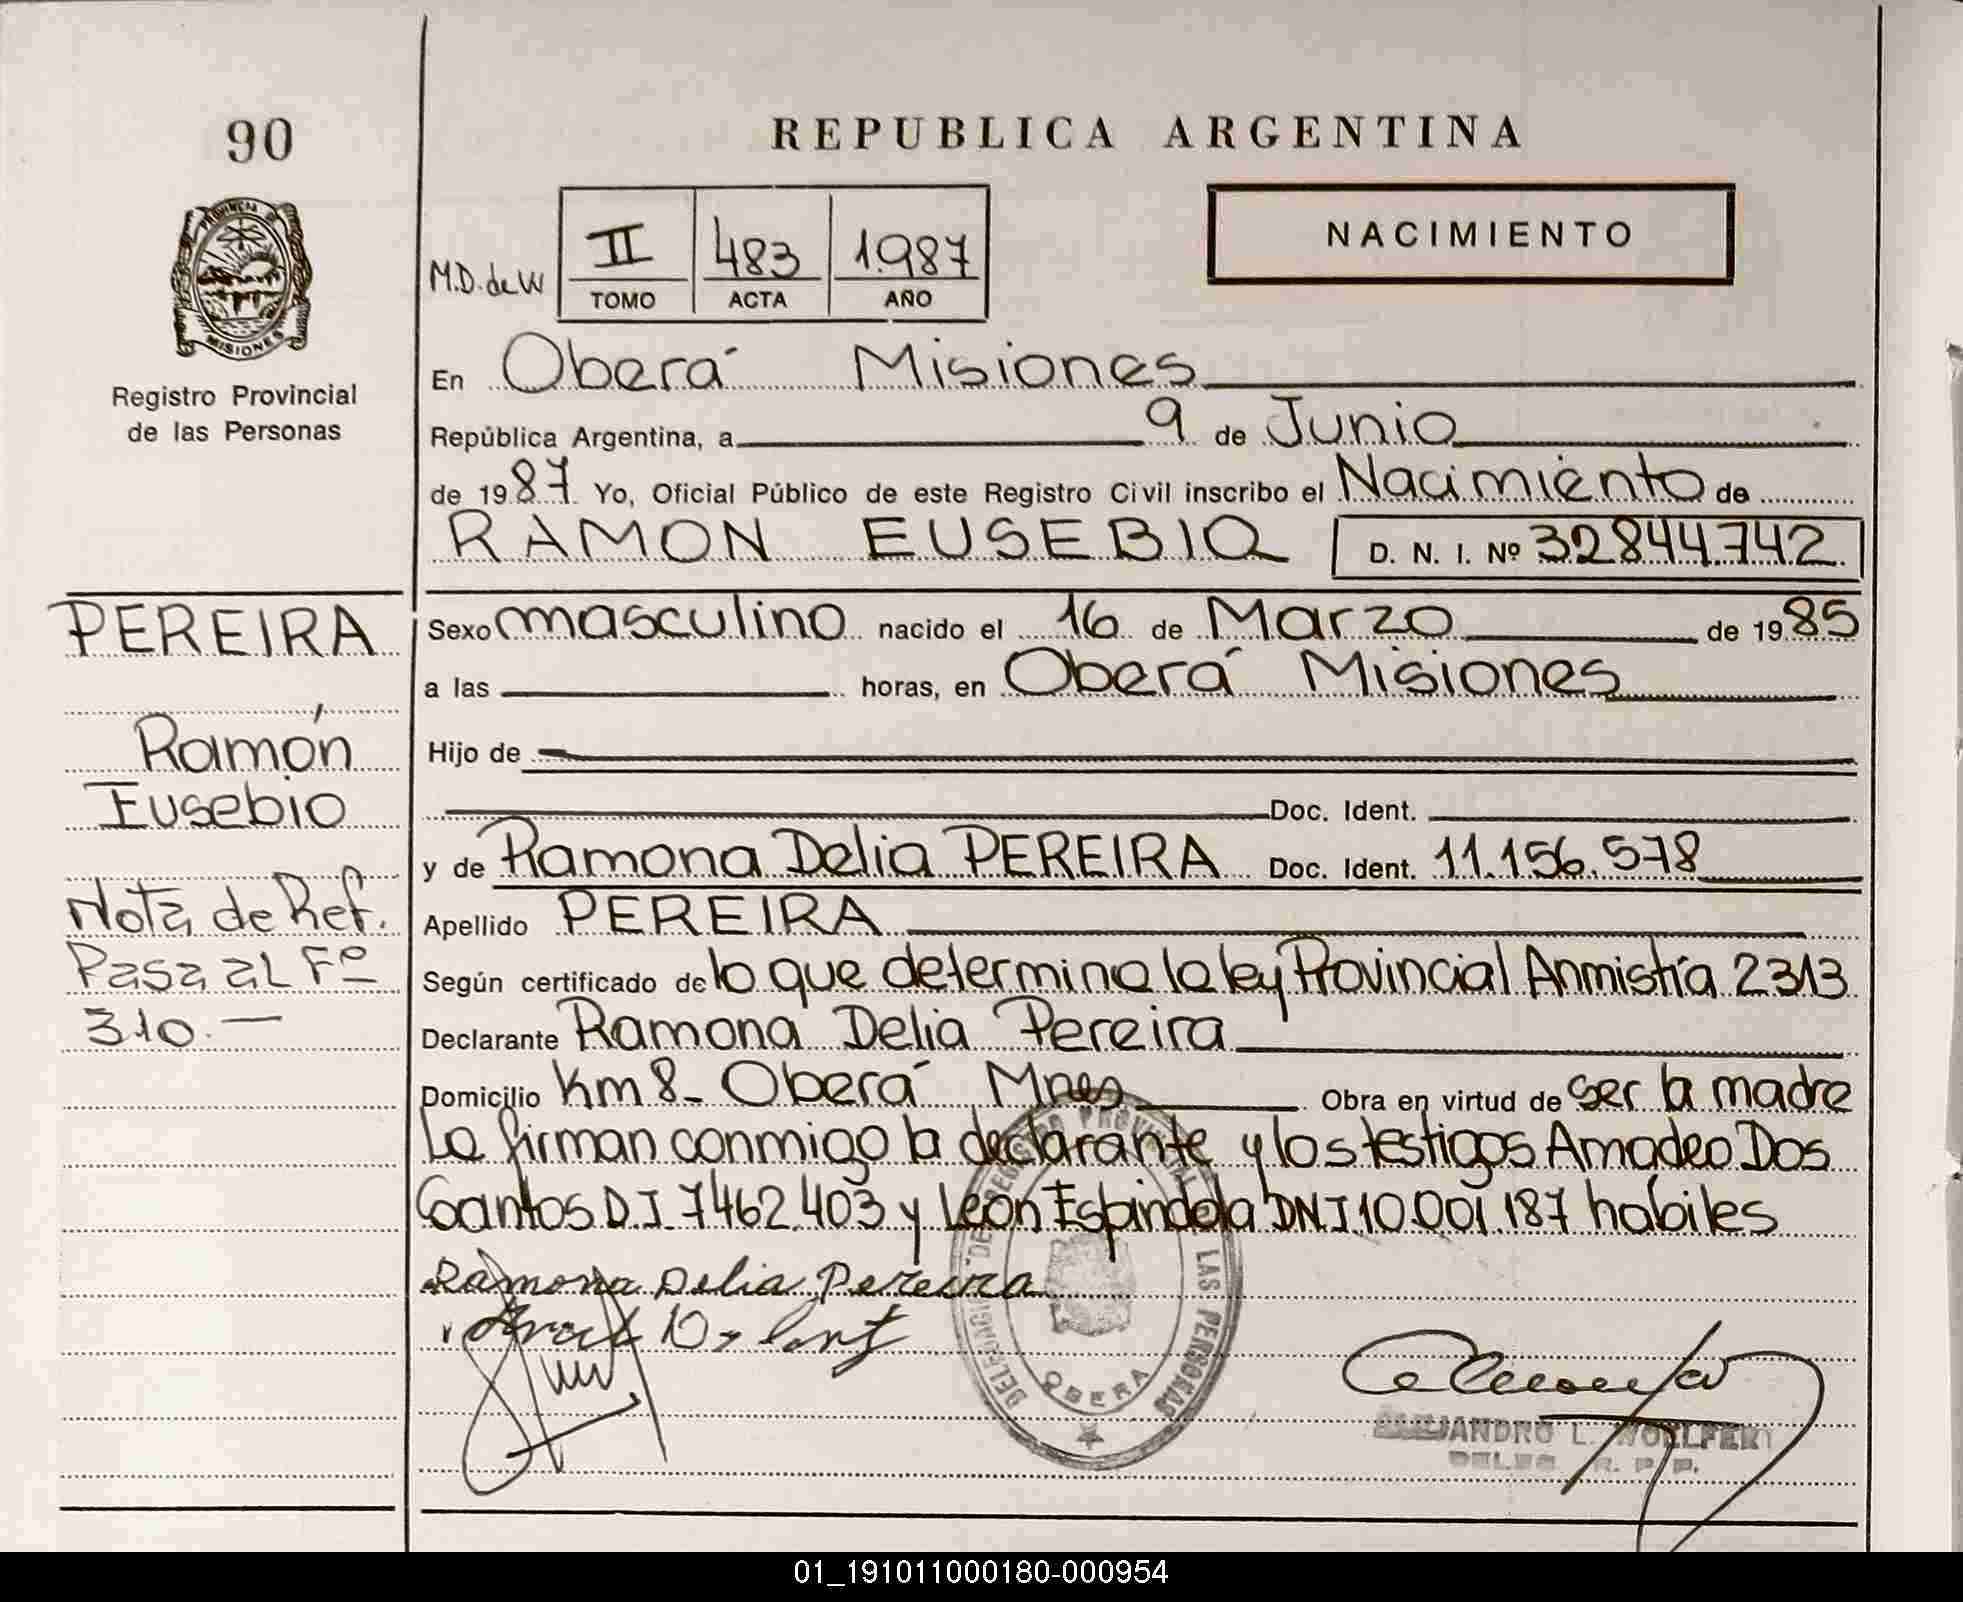 90
REPUBLICA ARGENTINA
PROVINCIA DE
MISIONES
Registro Provincial
de las Personas
M.D. de W
II 483 1.987
TOMO ACTA AÑO
NACIMIENTO
En Oberá Misiones
República Argentina, a 9 de Junio
de 1987. Yo, Oficial Público de este Registro Civil inscribo el Nacimiento de
RAMON EUSEBIO D. N. I. Nº 32844.742.
PEREIRA
Sexo masculino nacido el 16 de Marzo de 1985
a las horas, en Oberá Misiones
Ramón
Hijo de
Eusebio
Doc. Ident.
y de Ramona Delia PEREIRA Doc. Ident. 11.156.578
Nota de Ref.
Apellido PEREIRA
Pasa al Fº
Según certificado de lo que determina la ley Provincial Anmistía 2313
310.-
Declarante Ramona Delia Pereira
Domicilio Km 8- Oberá Mnes Obra en virtud de ser la madre
La firman conmigo la declarante y los testigos Amadeo Dos
Santos D.I. 7462.403 y León Espindola DNI 10.001.187 habiles
Ramona Delia Pereira
DELEGACION DEL REGISTRO PROVINCIAL DE LAS PERSONAS
OBERA
ALEJANDRO L.
DELEG. R. P. P.
01_191011000180-000954